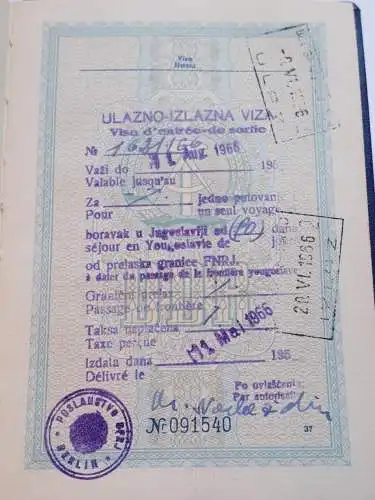 Visa
Visas
ULAZNO-IZLAZNA VIZA
Visa d'entrée-de sortie
№ 1631/66
11 Aug. 1966
Važi do 196
Valable jusqu'au
Za jedno putovanje
Pour un seul voyage
boravak u Jugoslaviji od dana
séjour en Yougoslavie de
od prelaska granice FNRJ.
à dater du passage de la frontière yougoslave
Granični prelaz
Passage de frontière
Taksa naplaćena
Taxe perçue
11 Mai 1966
Izdata dana 196
Délivré le
Po ovlašćenju
Par autorisation
№ 091540
37
POSLANSTVO SFRJ
BERLIN
VI. 1966
20. VI. 1966